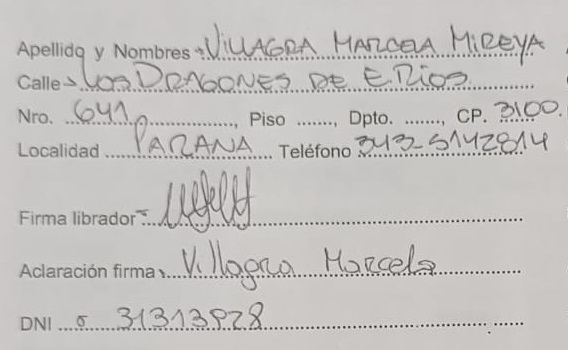 Apellido y Nombres VILLAGRA MARCELA MIREYA
Calle LOS DRAGONES DE E. RIOS
Nro. 641, Piso ......., Dpto. ......., CP. 3100.
Localidad PARANA Teléfono 343-5142814
Firma librador
Aclaración firma Villagra Marcela
DNI 31313928